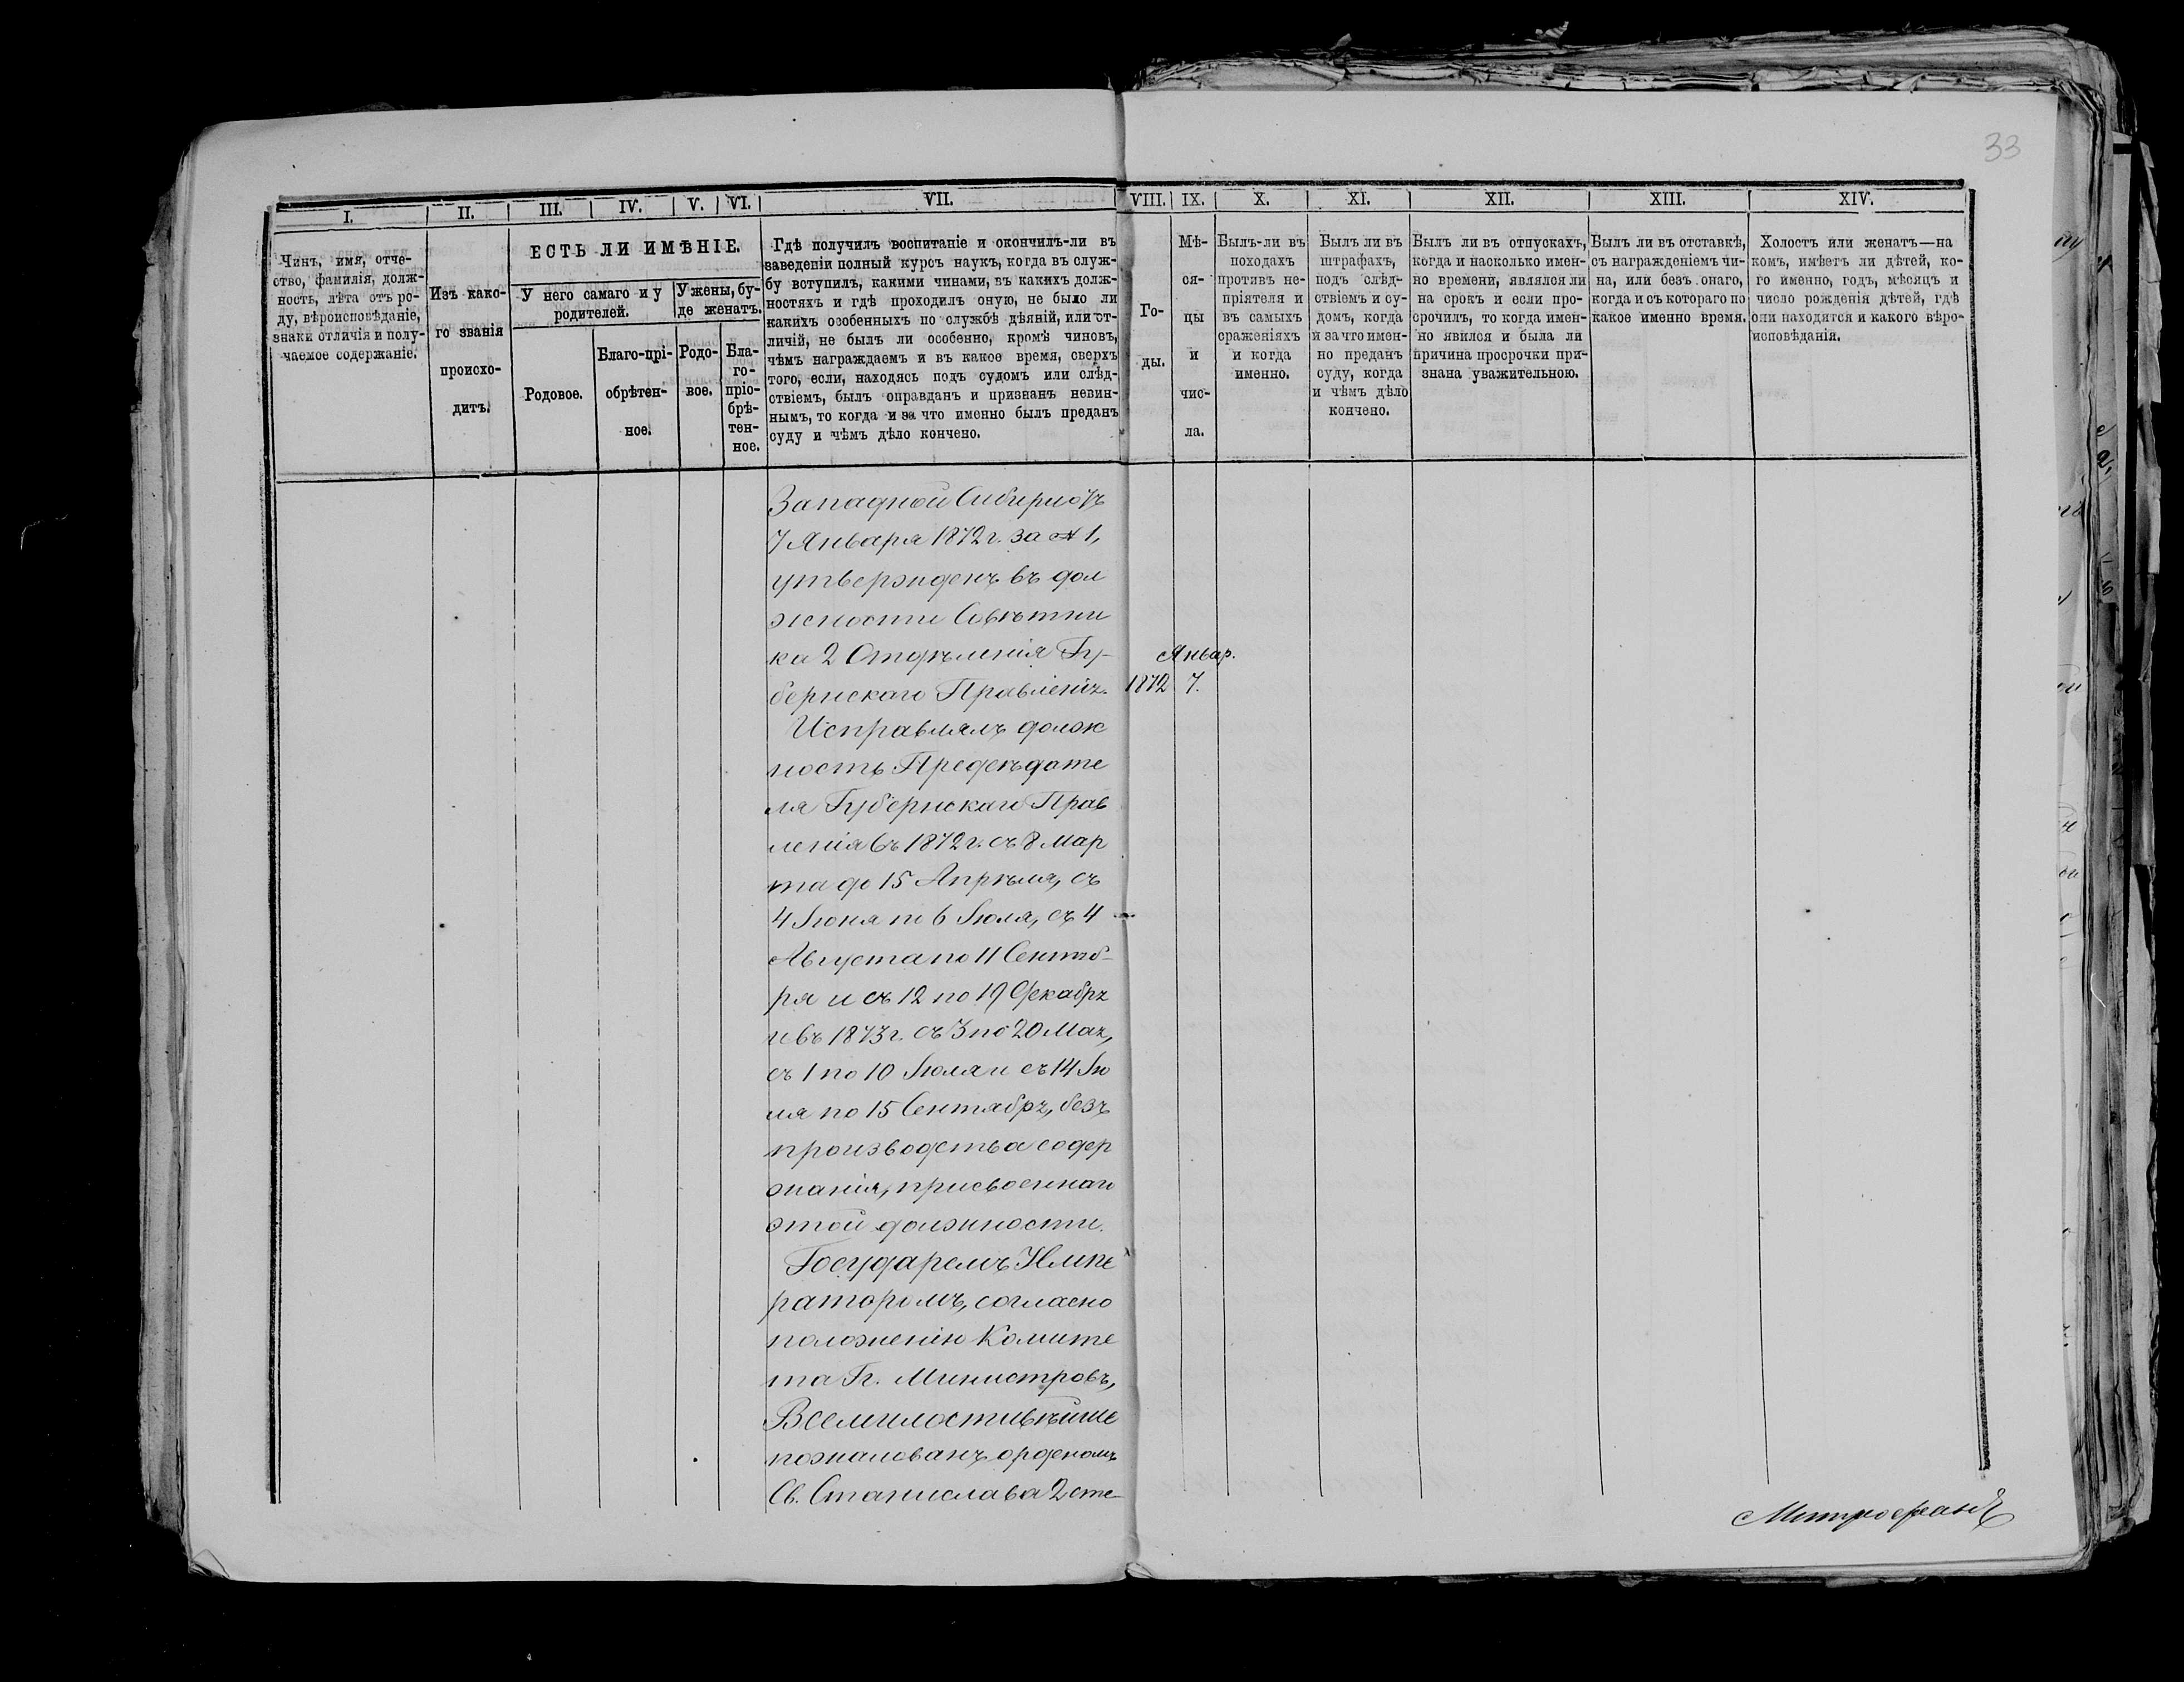 33
I. II. III. IV. V. VI. VII. VIII. IX. X. XI. XII. XIII. XIV.
Чинъ, имя, отче-
ство, фамилія, долж-
ность, лѣта отъ ро-
ду, вѣроисповѣданіе,
знаки отличія и полу-
чаемое содержаніе.
Изъ како-
го званія
происхо-
дитъ.
ЕСТЬ ЛИ ИМѢНІЕ.
У него самаго и у
родителей.
У жены, бу-
де женатъ.
Родовое.
Благо-прі-
обрѣтен-
ное.
Родо-
вое.
Бла-
го-
прю-
брѣ-
тен-
ное.
Гдѣ получилъ воспитаніе и окончилъ-ли въ
заведеніи полный курсъ наукъ, когда въ служ-
бу вступилъ, какими чинами, въ какихъ долж-
ностяхъ и гдѣ проходилъ оную, не было ли
какихъ особенныхъ по службѣ дѣяній, или от-
личій, не былъ ли особенно, кромѣ чиновъ,
чѣмъ награждаемъ и въ какое время, сверхъ
того, если, находясь подъ судомъ или слѣд-
ствіемъ, былъ оправданъ и признанъ невин-
нымъ, то когда и за что именно былъ преданъ
суду и чѣмъ дѣло кончено.
Го-
ды.
Мѣ-
ся-
цы
и
чис-
ла.
Былъ-ли въ
походахъ
противъ не-
пріятеля и
въ самыхъ
сраженіяхъ
и когда
именно.
Былъ ли въ
штрафахъ,
подъ слѣд-
ствіемъ и су-
домъ, когда
и за что имен-
но преданъ
суду, когда
и чѣмъ дѣло
кончено.
Былъ ли въ отпускахъ,
когда и насколько имен-
но времени, являлся ли
на срокъ и если про-
срочилъ, то когда имен-
но явился и была ли
причина просрочки при-
знана уважительною.
Былъ ли въ отставкѣ,
съ награжденіемъ чи-
на, или безъ онаго,
когда и съ котораго по
какое именно время.
Холостъ или женатъ—на
комъ, имѣетъ ли дѣтей, ко-
го именно, годъ, мѣсяцъ и
число рожденія дѣтей, гдѣ
они находятся и какого вѣро-
исповѣданія.
Западной Сибири отъ
7 Января 1872 г. за № 1,
утвержденъ въ дол
жности Совѣтни
ка 2 Отдѣленія Гу-
бернскаго Правленія.
Январ.
1872 7.
Исправлялъ долж
ность Предсѣдате
ля Губернскаго Прав
ленія въ 1872 г. съ 8 Мар
та до 15 Апрѣля, съ
4 Іюня по 6 Іюля, съ 4
Августа по 11 Сентяб-
ря и съ 12 по 19 Декабря
и въ 1873 г. съ 3 по 20 Мая,
съ 1 по 10 Іюля и съ 14 Ію
ля по 15 Сентября, безъ
производства содер
жанія, присвоеннаго
этой должности.
Государемъ Импе
раторомъ, согласно
положенію Комите
та Гг. Министровъ,
Всемилостивѣйше
пожалованъ орденомъ
Св. Станислава 2 сте-
Митрофанъ